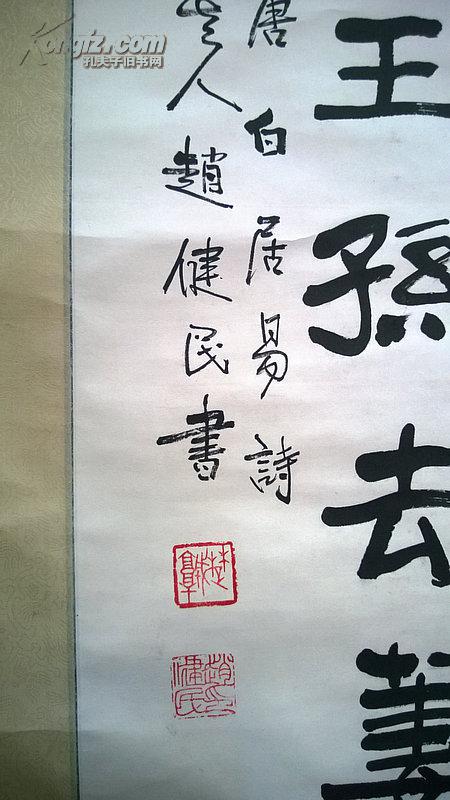 王孫去萋
唐白居易詩
人趙健民書
Kongfz.com
孔夫子旧书网